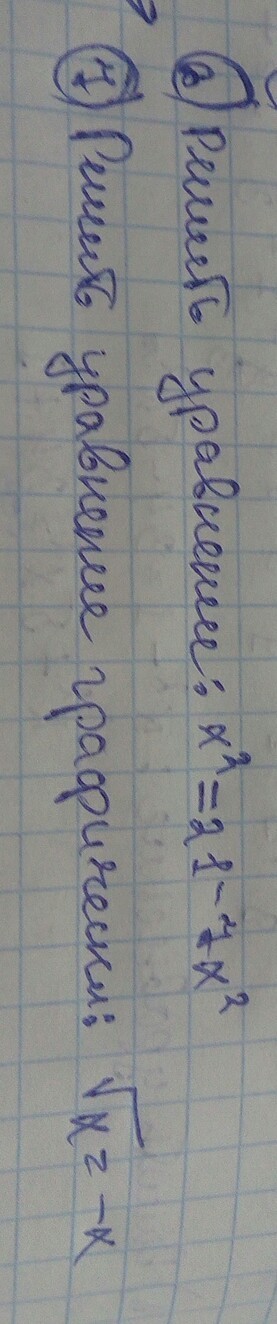 ⑥ Решить уравнение: x² = 21 - 7x²
⑦ Решить уравнение графически: √x = -x